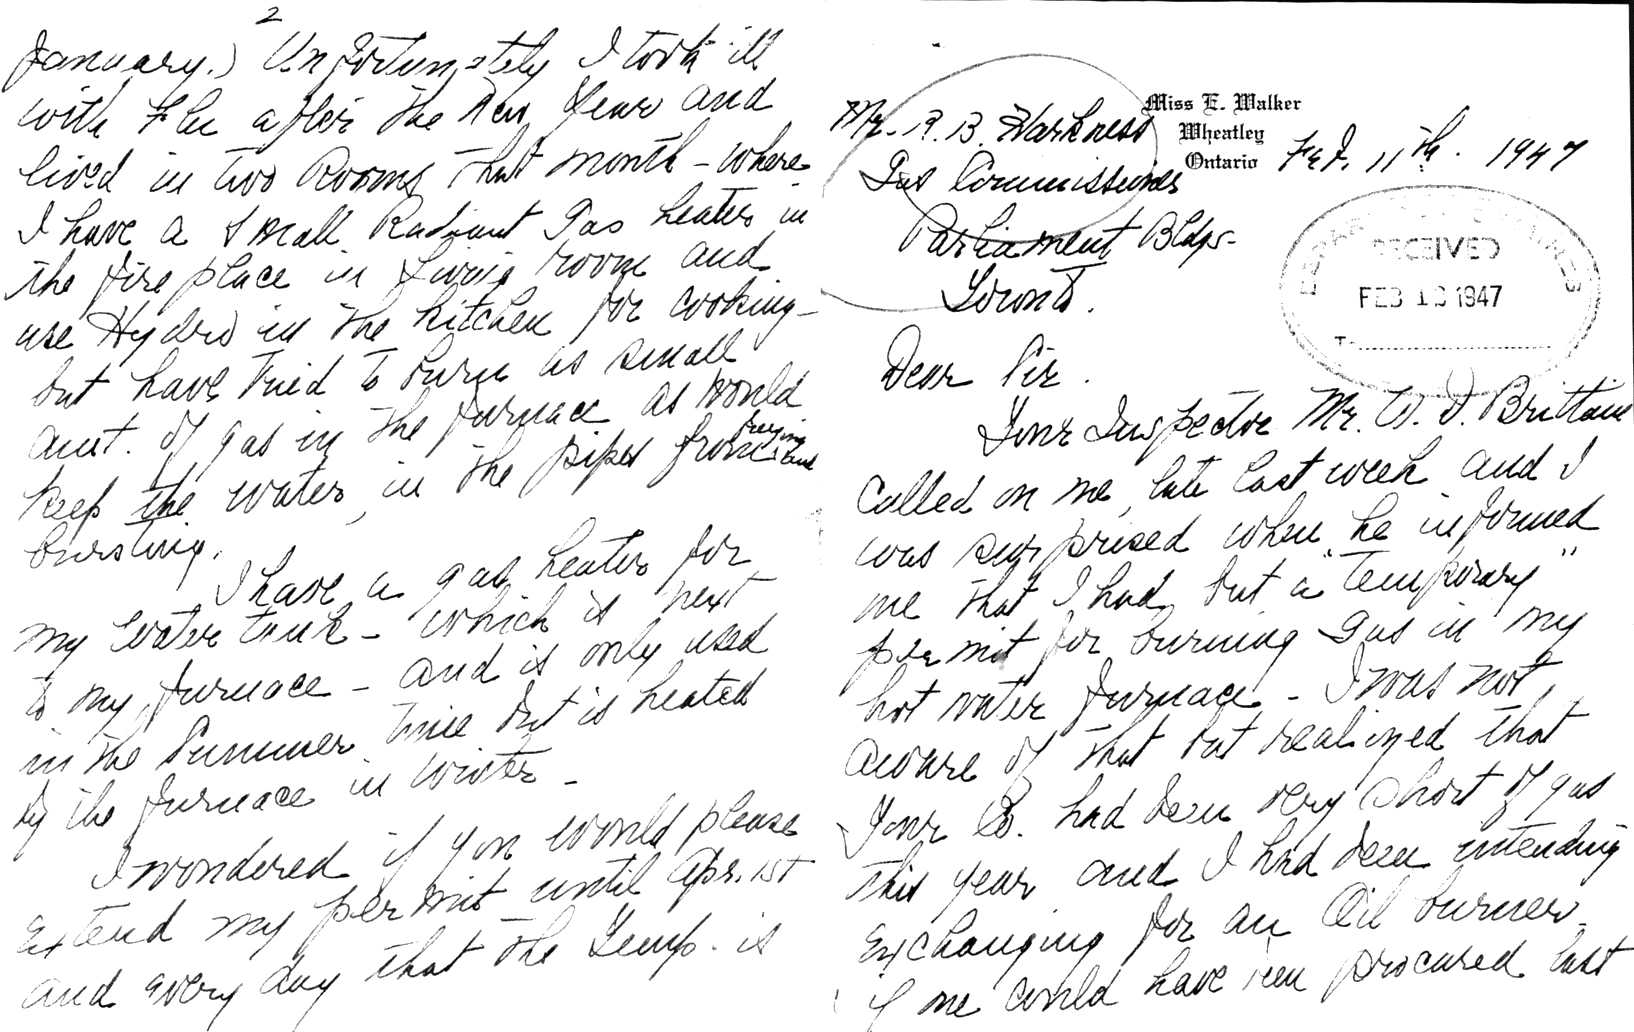 Miss E. Walker
Wheatley
Ontario
Mr. R. B. Harkness
Feb. 11th. 1947
Gas Commissioner
Parliament Bldgs-
Toronto.
RECEIVED
FEB 13 1947
T
Dear Sir.
Your Inspector Mr. W. J. Brittain
called on me, late last week and I
was surprised when he informed
me that I had but a "Temporary"
permit for burning gas in my
hot water furnace - I was not
aware of that but realized that
Your Co. had been very short of gas
this year and I had been intending
Exchanging for an Oil burner-
if one could have been procured last
2
January.) Unfortunately I took ill
with Flu after the New Year and
lived in two Rooms that month - where
I have a small Radiant Gas heater in
the fire place in Living room and
use Hydro in the kitchen for cooking -
but have tried to burn as small
amt. of gas in the furnace as would
keep the water in the pipes from freezing and
bursting.
I have a gas heater for
my water tank - which is next
to my furnace - and is only used
in the Summer time but is heated
by the furnace in winter -
I wondered if you would please
Extend my permit until Apr. 1st
and every day that the Temp. is